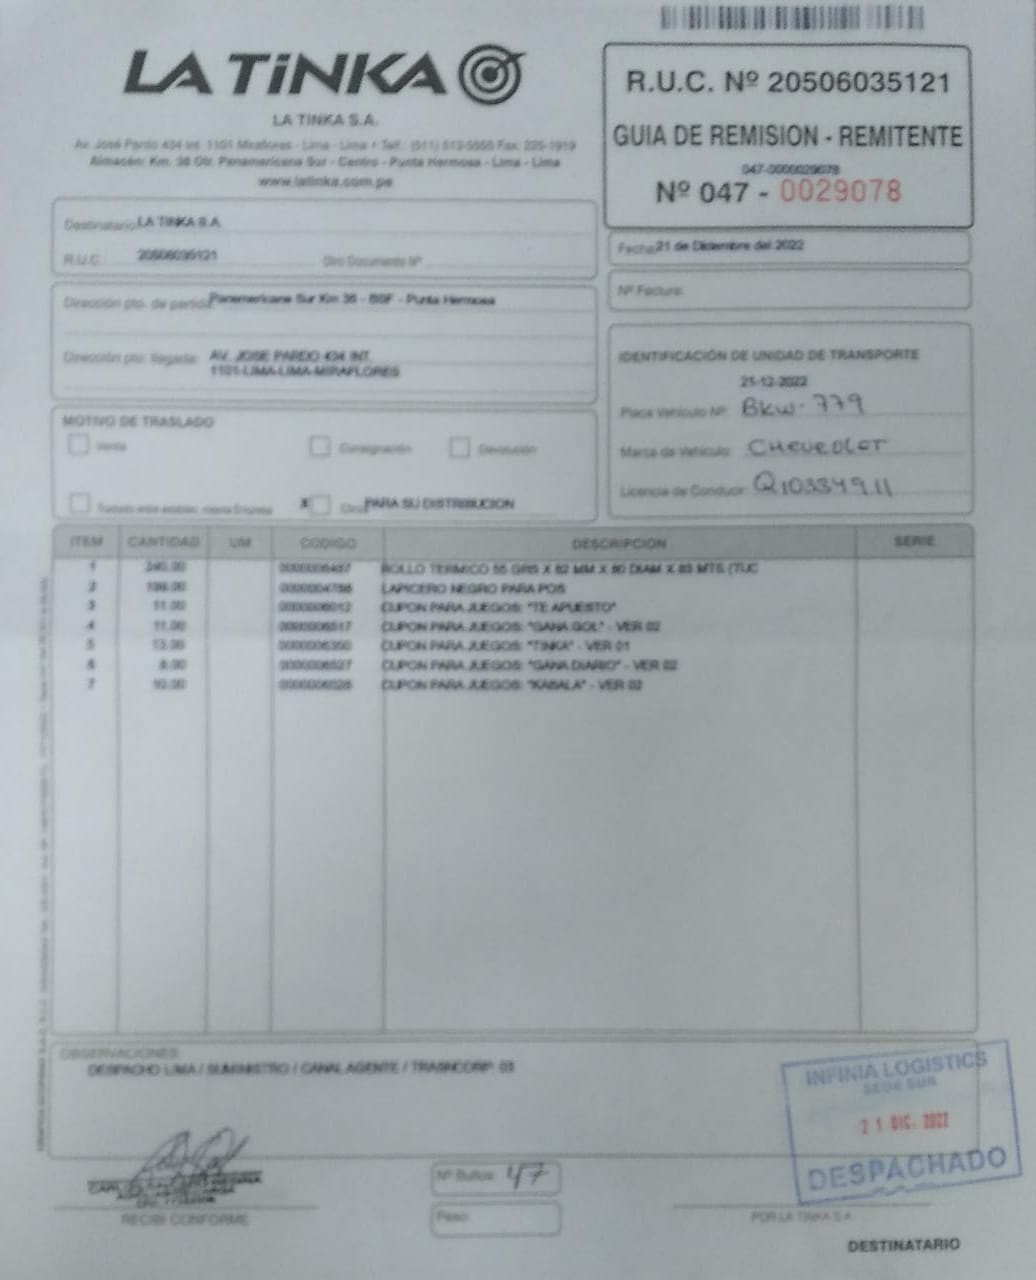 LA TiNKA
LA TINKA S.A.
Av. José Pardo 434 Int. 1101 Miraflores - Lima - Lima • Telf.: (511) 513-5555 Fax: 225-1919
Almacén: Km. 38 Ctr. Panamericana Sur - Centro - Punta Hermosa - Lima - Lima
www.latinka.com.pe
R.U.C. Nº 20506035121
GUIA DE REMISION - REMITENTE
047-0000029078
Nº 047 - 0029078
Destinatario: LA TINKA S.A.
R.U.C.: 20506035121 Otro Documento Nº
Fecha: 21 de Diciembre del 2022
Nº Factura:
Dirección pto. de partida: Panamericana Sur Km 38 - BSF - Punta Hermosa
Dirección pto. llegada: AV. JOSE PARDO 434 INT.
1101-LIMA-LIMA-MIRAFLORES
IDENTIFICACIÓN DE UNIDAD DE TRANSPORTE
21-12-2022
Placa Vehículo Nº: BKW-779
Marca de Vehículo: CHEVROLET
Licencia de Conducir: Q10334911
MOTIVO DE TRASLADO
Venta Consignación Devolución
Traslado entre establec. misma Empresa X Otros PARA SU DISTRIBUCION
ITEM CANTIDAD UM CODIGO DESCRIPCION SERIE
1 ROLLO TERMICO 55 GRS X 82 MM X 80 DIAM X 83 MTS (TUC
2 LAPICERO NEGRO PARA POS
3 11.00 CUPON PARA JUEGOS: "TE APUESTO"
4 11.00 CUPON PARA JUEGOS: "GANA GOL" - VER 02
5 13.00 CUPON PARA JUEGOS: "TINKA" - VER 01
6 8.00 CUPON PARA JUEGOS: "GANA DIARIO" - VER 02
7 10.00 CUPON PARA JUEGOS: "KABALA" - VER 02
OBSERVACIONES
DESPACHO LIMA / SUMINISTRO / CANAL AGENTE / TRASNCORP: 03
INFINIA LOGISTICS
SEDE SUR
21 DIC. 2022
DESPACHADO
RECIBI CONFORME
Nº Bultos: 47
Peso:
POR LA TINKA S.A.
DESTINATARIO